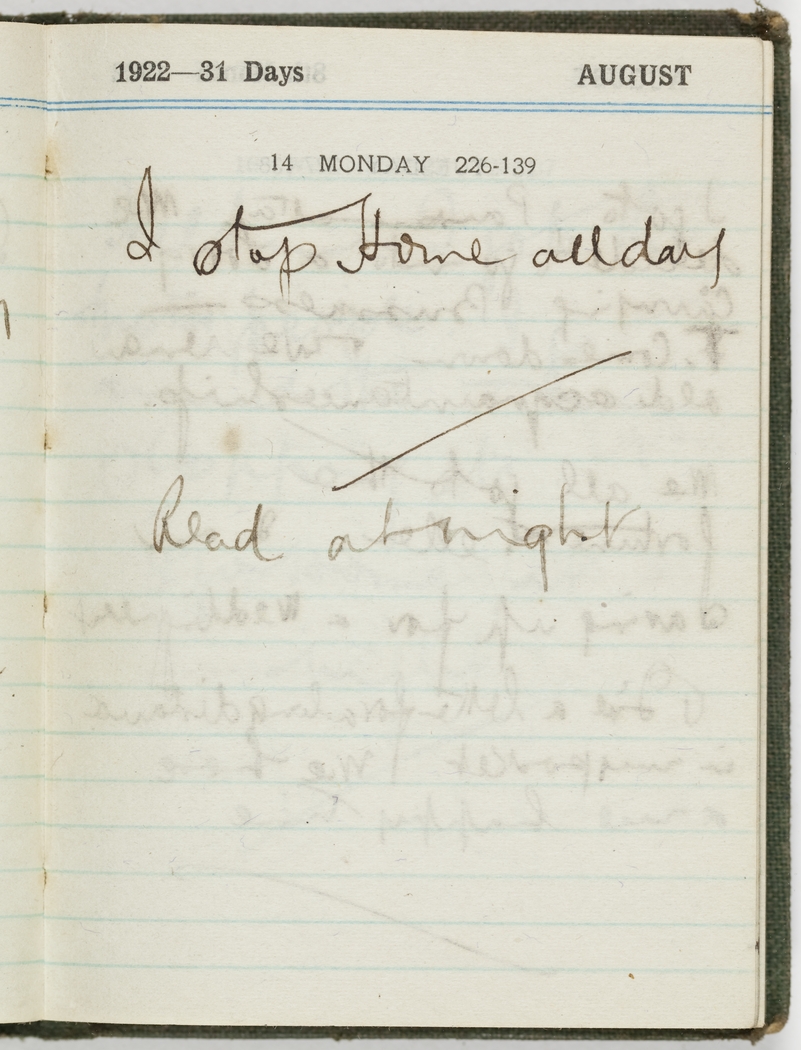 1922—31 Days AUGUST
14 MONDAY 226-139
I stop Home all day
Read at night